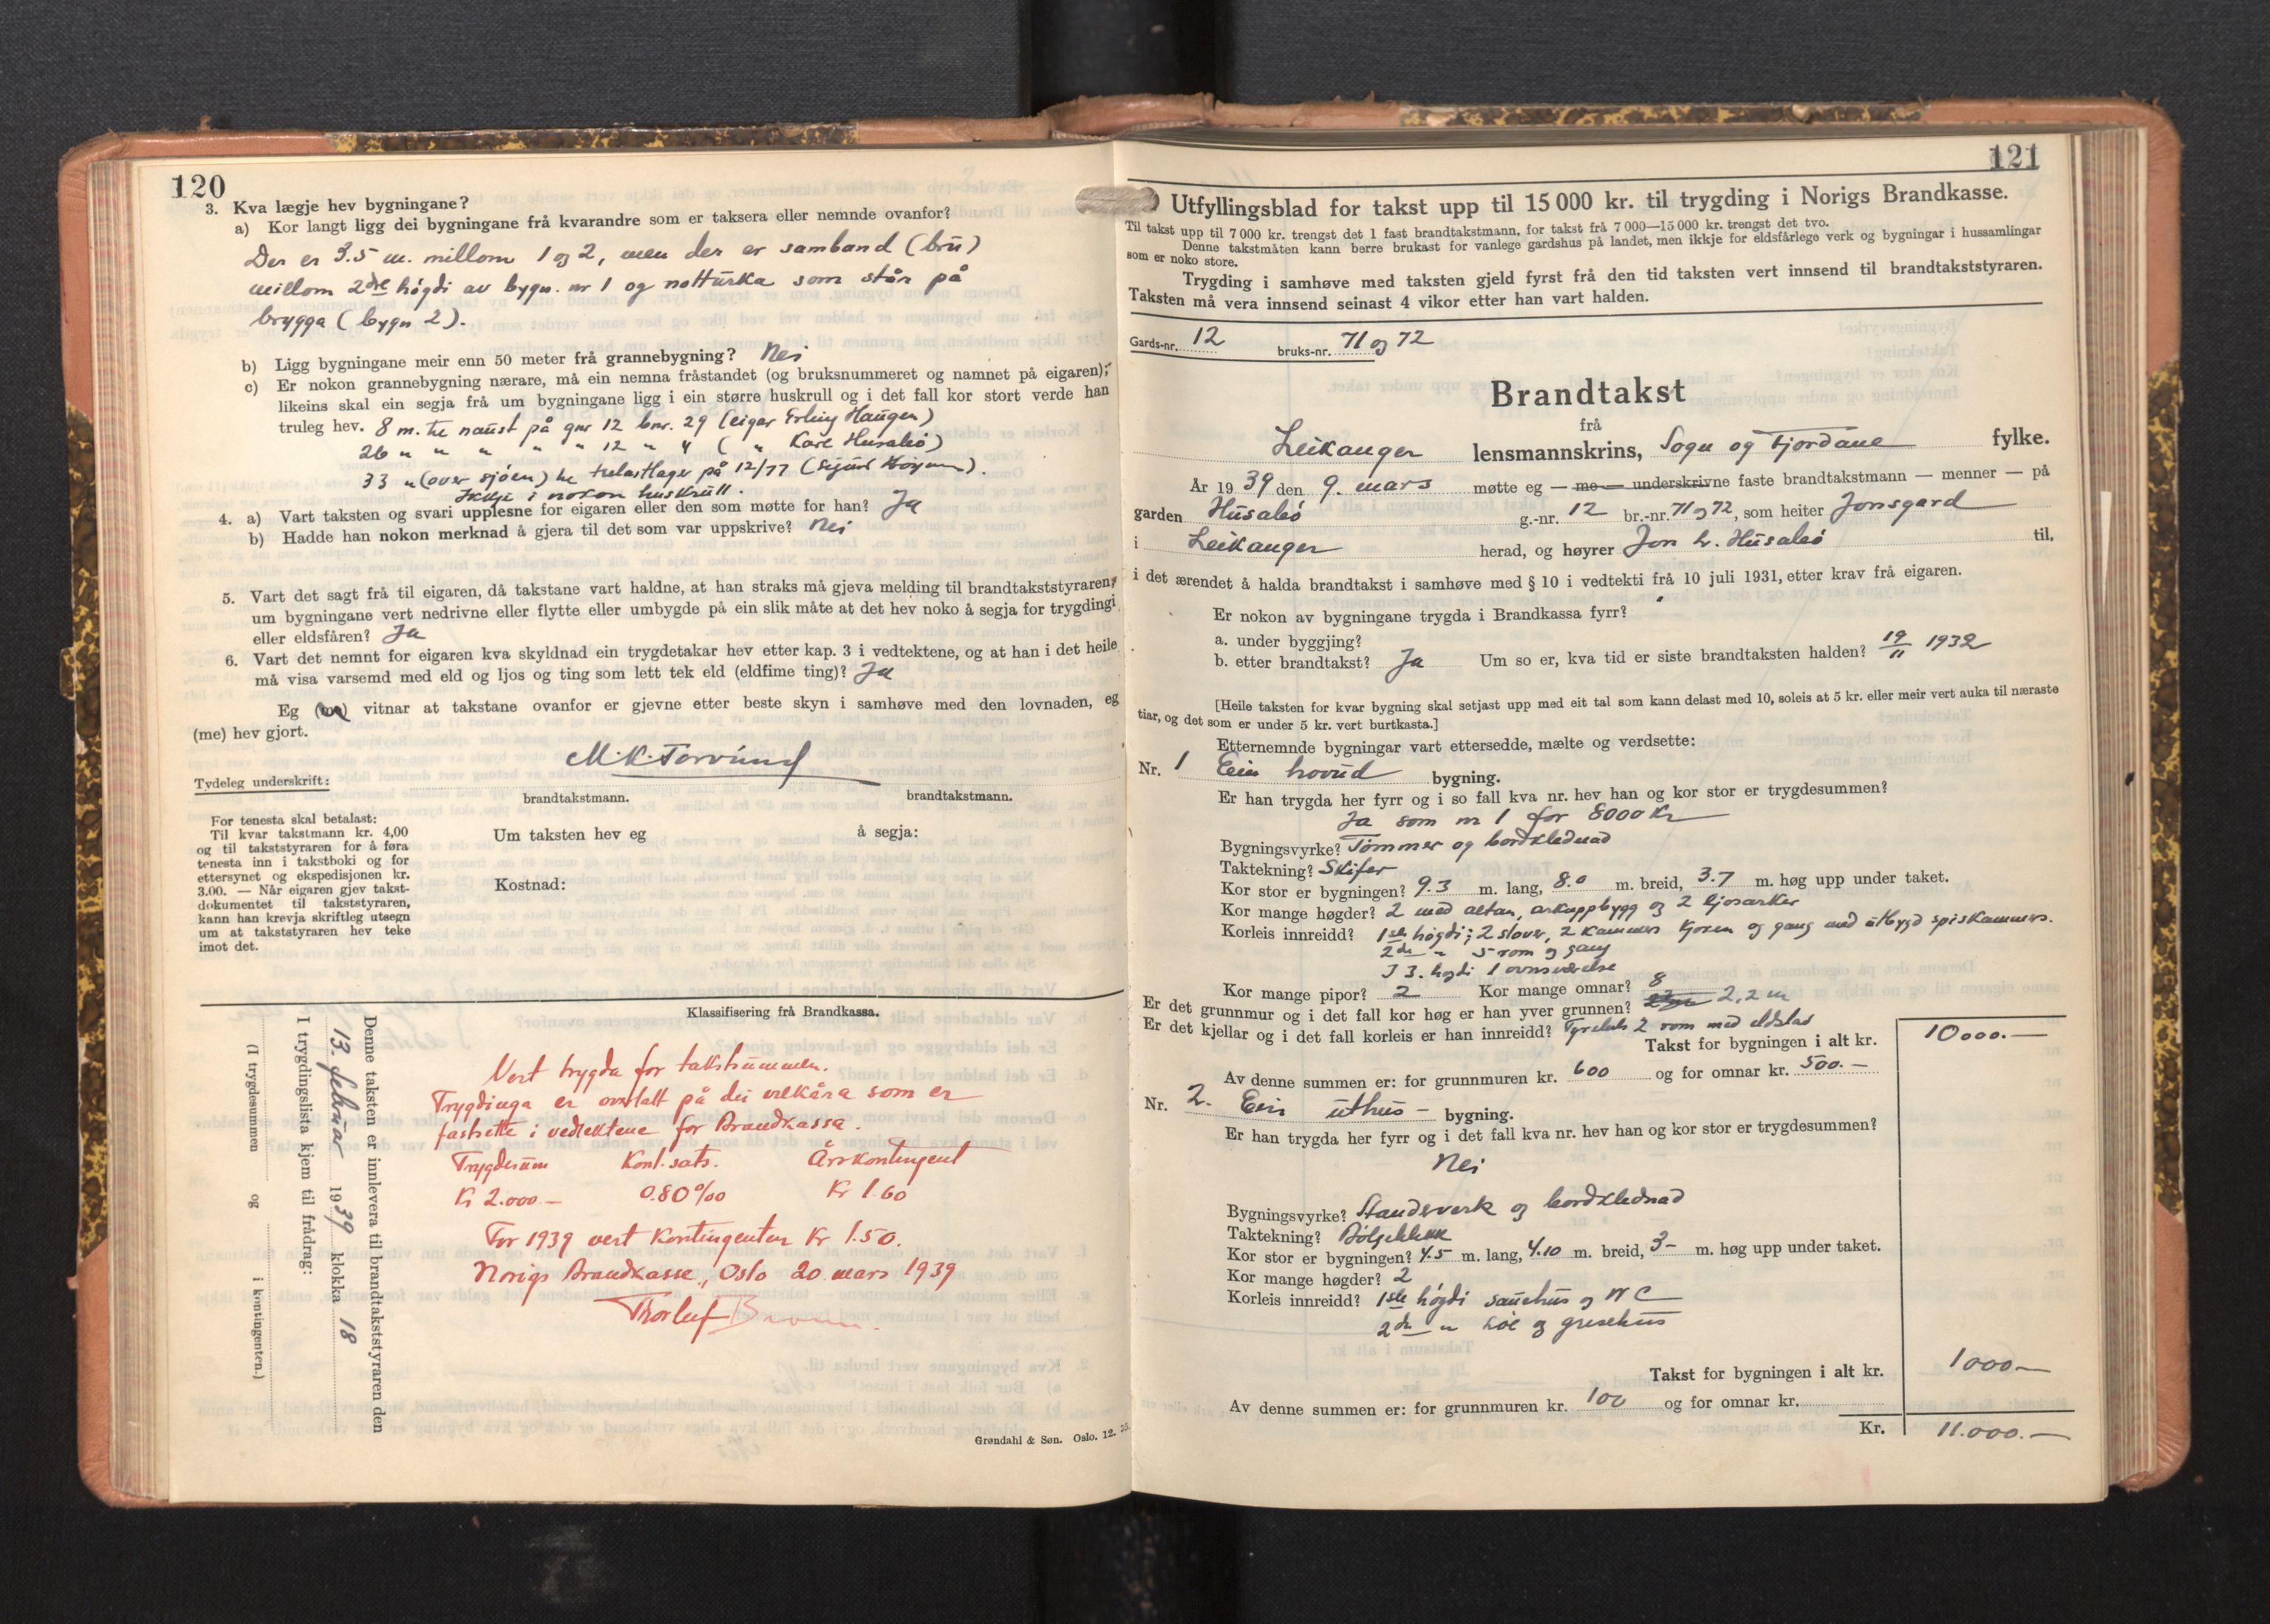 120
3. Kva lægje hev bygningane?
a) Kor langt ligg dei bygningane frå kvarandre som er taksera eller nemnde ovanfor?
Der er 3.5 m. millom 1 og 2, men der er samband (bru)
millom 2dre høgdi av bygn. nr 1 og notturka som står på
brygga (bygn 2).
b) Ligg bygningane meir enn 50 meter frå grannebygning? Nei
c) Er nokon grannebygning nærare, må ein nemna fråstandet (og bruksnummeret og namnet på eigaren);
likeins skal ein segja frå um bygningane ligg i ein større huskrull og i det fall kor stort verde han
truleg hev. 8 m. til naust på gnr 12 bnr. 29 (eigar Erling Haugen)
26 " " " " " 12 " 4 ( " Kåre Husabø)
33 " (over sjøen) til trelastlager på 12/77 (Sigurd
Ikkje i nokon huskrull.
4. a) Vart taksten og svari upplesne for eigaren eller den som møtte for han? Ja
b) Hadde han nokon merknad å gjera til det som var uppskrive? Nei
5. Vart det sagt frå til eigaren, då takstane vart haldne, at han straks må gjeva melding til brandtakststyraren,
um bygningane vert nedrivne eller flytte eller umbygde på ein slik måte at det hev noko å segja for trygdingi
eller eldsfåren? Ja
6. Vart det nemnt for eigaren kva skyldnad ein trygdetakar hev etter kap. 3 i vedtektene, og at han i det heile
må visa varsemd med eld og ljos og ting som lett tek eld (eldfime ting)? Ja
Eg (me) vitnar at takstane ovanfor er gjevne etter beste skyn i samhøve med den lovnaden, eg
(me) hev gjort.
M. K. Torvund
Tydeleg underskrift:
brandtakstmann. brandtakstmann.
For tenesta skal betalast:
Til kvar takstmann kr. 4,00
og til takststyraren for å føra
tenesta inn i takstboki og for
ettersynet og ekspedisjonen kr.
3.00. — Når eigaren gjev takst-
dokumentet til takststyraren,
kann han krevja skriftleg utsegn
um at takststyraren hev teke
imot det.
Um taksten hev eg å segja:
Kostnad:
Klassifisering frå Brandkassa.
Denne taksten er innlevera til brandtakststyraren den
13. februar 1939 klokka 18
I trygdingslista kjem til frådrag:
(I trygdesummen og i kontingenten.)
Vert trygda for takstsummen.
Trygdinga er overlatt på dei vilkåra som er
fastsette i vedtektene for Brandkassa.
Trygdesum Kont. sats. Årskontingent
Kr 2.000.- 0.80 ‰ Kr 1.60
For 1939 vert kontingenten kr 1.50.
Norigs Brandkasse, Oslo 20 mars 1939
Thorleif
Grøndahl & Søn. Oslo. 12. 35.
121
Utfyllingsblad for takst upp til 15 000 kr. til trygding i Norigs Brandkasse.
Til takst upp til 7 000 kr. trengst det 1 fast brandtakstmann, for takst frå 7 000—15 000 kr. trengst det tvo.
Denne takstmåten kann berre brukast for vanlege gardshus på landet, men ikkje for eldsfårlege verk og bygningar i hussamlingar
som er noko store.
Trygding i samhøve med taksten gjeld fyrst frå den tid taksten vert innsend til brandtakststyraren.
Taksten må vera innsend seinast 4 vikor etter han vart halden.
Gards-nr. 12 bruks-nr. 71 og 72
Brandtakst
frå
Leikanger lensmannskrins, Sogn og Fjordane fylke.
År 1939 den 9. mars møtte eg — me — underskrivne faste brandtakstmann — menner — på
garden Husabø g.-nr. 12 br.-nr. 71 og 72, som heiter Jonsgard
i Leikanger herad, og høyrer Jon L. Husabø til,
i det ærendet å halda brandtakst i samhøve med § 10 i vedtekti frå 10 juli 1931, etter krav frå eigaren.
Er nokon av bygningane trygda i Brandkassa fyrr?
a. under byggjing?
b. etter brandtakst? Ja Um so er, kva tid er siste brandtaksten halden? 19/11 1932
[Heile taksten for kvar bygning skal setjast upp med eit tal som kann delast med 10, soleis at 5 kr. eller meir vert auka til næraste
tiar, og det som er under 5 kr. vert burtkasta.]
Etternemnde bygningar vart ettersedde, mælte og verdsette:
Nr. 1 Ein hovud bygning.
Er han trygda her fyrr og i so fall kva nr. hev han og kor stor er trygdesummen?
Ja som nr 1 for 8000 kr
Bygningsvyrke? Tømmer og bordklednad
Taktekning? Skifer
Kor stor er bygningen? 9.3 m. lang, 8.0 m. breid, 3.7 m. høg upp under taket.
Kor mange høgder? 2 med altan, arkuppbygg og 2 ljosarker
Korleis innreidd? 1ste høgdi; 2 stover, 2 kammers kjøken og gang med utbygd spiskammers.
2dre " 5 rom og gang
I 3. høgdi 1 ovnsværelse
Kor mange pipor? 2 Kor mange omnar? 8
Er det grunnmur og i det fall kor høg er han yver grunnen? 2,2 m
Er det kjellar og i det fall korleis er han innreidd? 2 rom med eldstad
Takst for bygningen i alt kr. 10000.—
Av denne summen er: for grunnmuren kr. 600 og for omnar kr. 500.—
Nr. 2. Ein uthus- bygning.
Er han trygda her fyrr og i det fall kva nr. hev han og kor stor er trygdesummen?
Nei
Bygningsvyrke? Standsverk og bordklednad
Taktekning? Bølgeblikk
Kor stor er bygningen? 4.5 m. lang, 4.10 m. breid, 3- m. høg upp under taket.
Kor mange høgder? 2
Korleis innreidd? 1ste høgdi sauehus og WC
2dre " Løe og grisehus
Takst for bygningen i alt kr. 1000—
Av denne summen er: for grunnmuren kr. 100 og for omnar kr.
Kr. 11.000.—